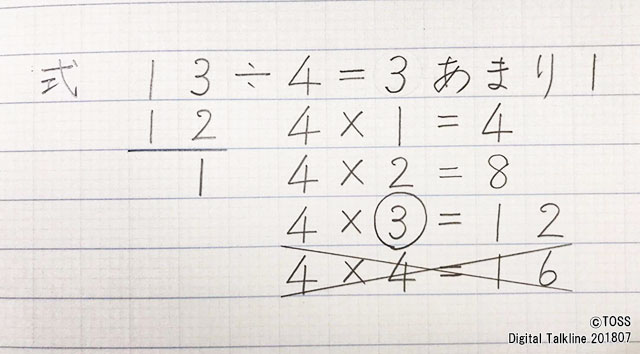 式 13÷4=3あまり1
12 4×1=4
1 4×2=8
4×3=12
4×4=16
©TOSS
Digital Talkline 201807